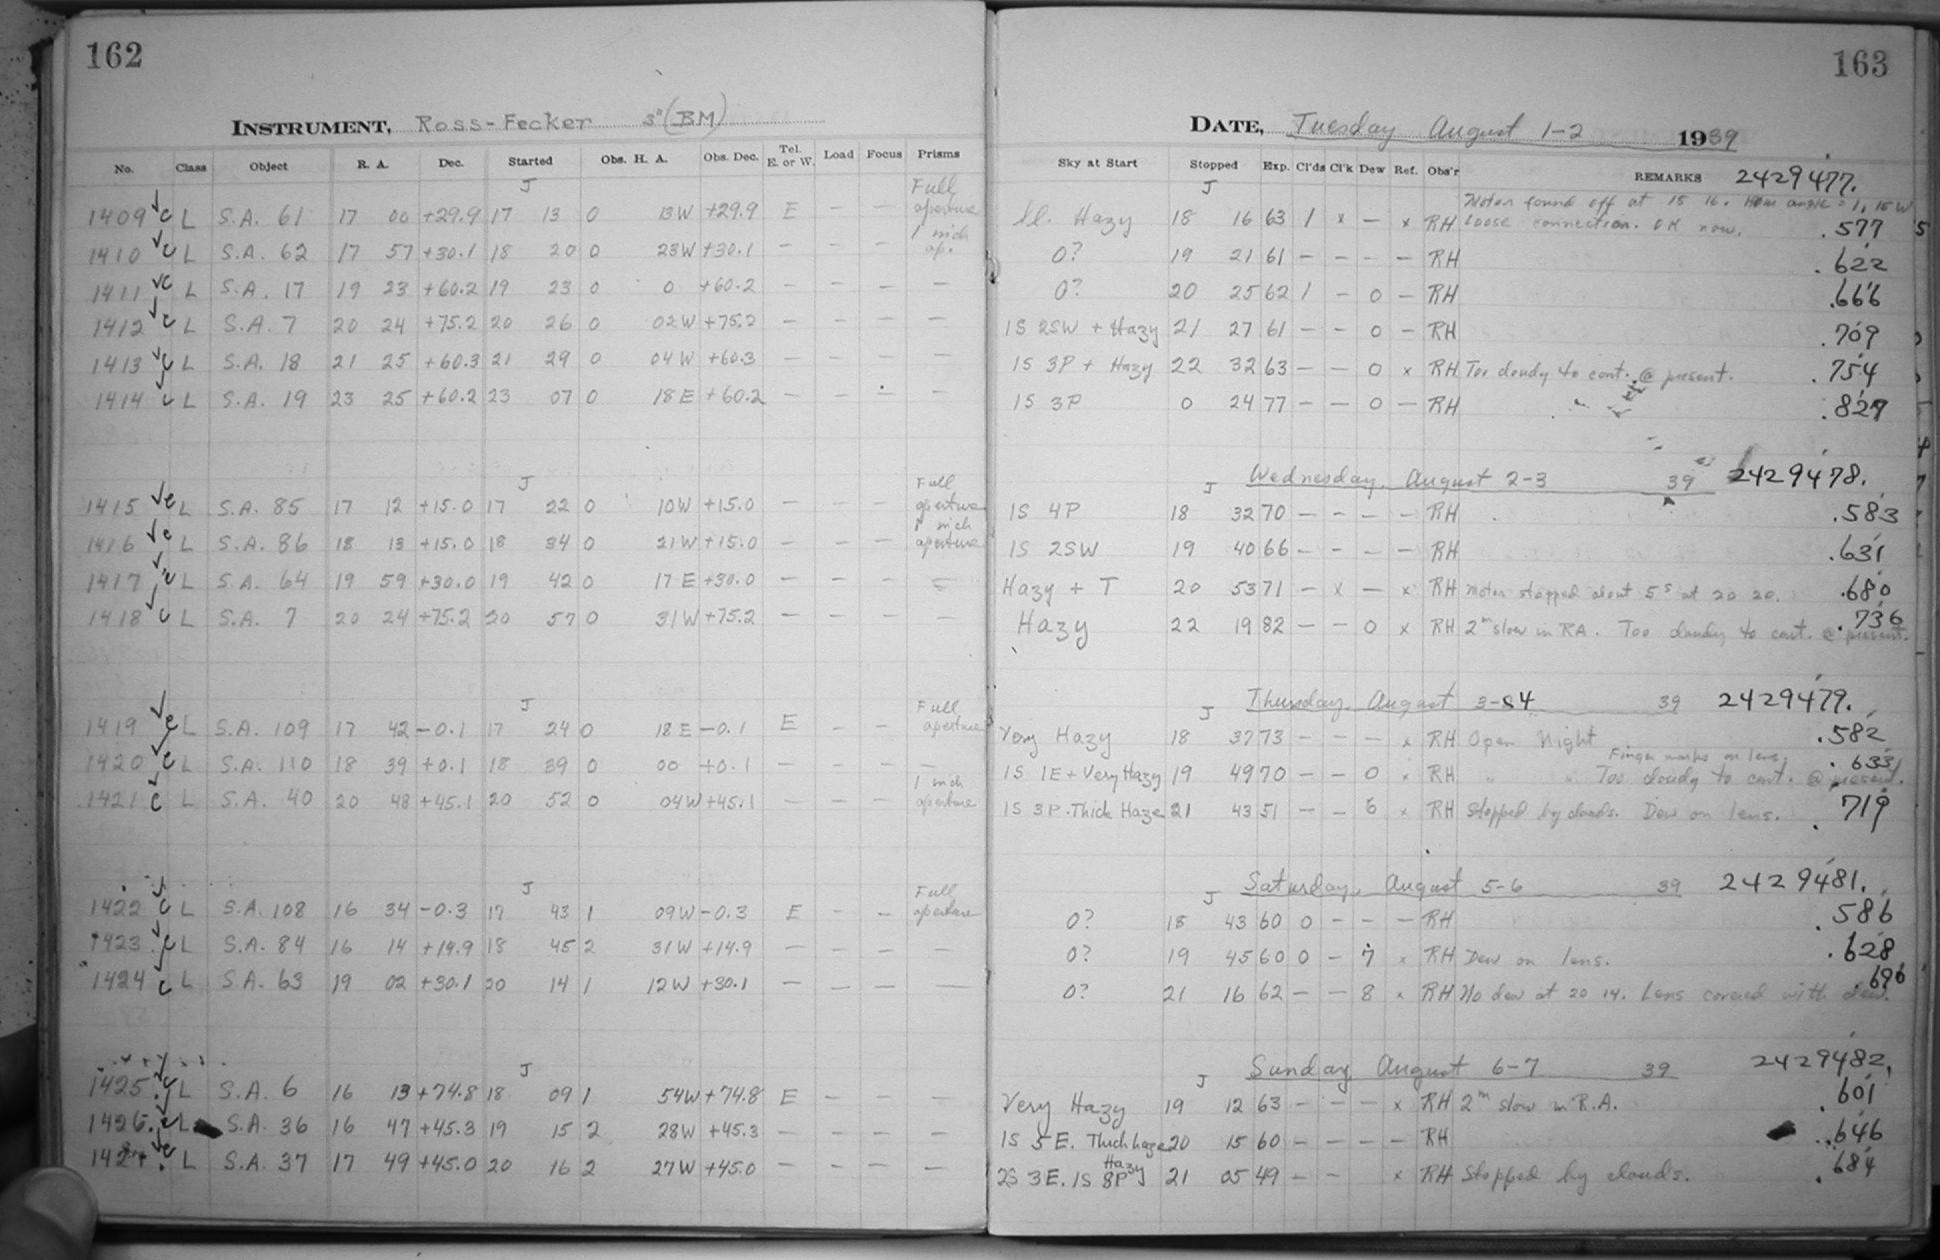 162
INSTRUMENT, Ross-Fecker 3" (BM)
No. Class Object R. A. Dec. Started Obs. H. A. Obs. Dec. Tel. E. or W. Load Focus Prisms
J Full aperture
1409 c L S.A. 61 17 00 +29.9 17 13 0 13W +29.9 E — —
1410 c L S.A. 62 17 57 +30.1 18 20 0 23W +30.1 — — — 1 inch ap.
1411 c L S.A. 17 19 23 +60.2 19 23 0 0 +60.2 — — — —
1412 c L S.A. 7 20 24 +75.2 20 26 0 02W +75.2 — — — —
1413 c L S.A. 18 21 25 +60.3 21 29 0 04W +60.3 — — — —
1414 c L S.A. 19 23 25 +60.2 23 07 0 18E +60.2 — — — —
J Full aperture
1415 c L S.A. 85 17 12 +15.0 17 22 0 10W +15.0 — — —
1416 c L S.A. 86 18 13 +15.0 18 34 0 21W +15.0 — — — 1 inch aperture
1417 c L S.A. 64 19 59 +30.0 19 42 0 17E +30.0 — — — —
1418 c L S.A. 7 20 24 +75.2 20 57 0 31W +75.2 — — — —
J Full aperture
1419 c L S.A. 109 17 42 -0.1 17 24 0 18E -0.1 E — —
1420 c L S.A. 110 18 39 +0.1 18 39 0 00 +0.1 — — — —
1421 c L S.A. 40 20 48 +45.1 20 52 0 04W +45.1 — — — 1 inch aperture
J Full aperture
1422 c L S.A. 108 16 34 -0.3 17 43 1 09W -0.3 E — —
1423 c L S.A. 84 16 14 +14.9 18 45 2 31W +14.9 — — — —
1424 c L S.A. 63 19 02 +30.1 20 14 1 12W +30.1 — — — —
J
1425 c L S.A. 6 16 13 +74.8 18 09 1 54W +74.8 E — — —
1426 c L S.A. 36 16 47 +45.3 19 15 2 28W +45.3 — — — —
1427 c L S.A. 37 17 49 +45.0 20 16 2 27W +45.0 — — — —
163
DATE, Tuesday August 1-2 1939
Sky at Start Stopped Exp. Cl'ds Cl'k Dew Ref. Obs'r REMARKS 2429477.
J Motor found off at 15 16. Hour angle = 1, 15 W
Sl. Hazy 18 16 63 1 x — x RH Loose connection. OK now. .577
0? 19 21 61 — — — — RH .622
0? 20 25 62 1 — 0 — RH .666
1S 2SW + Hazy 21 27 61 — — 0 — RH .709
1S 3P + Hazy 22 32 63 — — 0 x RH Too cloudy to cont. @ present. .754
1S 3P 0 24 77 — — 0 — RH .827
J Wednesday, August 2-3 39 2429478.
1S 4P 18 32 70 — — — — RH .583
1S 2SW 19 40 66 — — — — RH .631
Hazy + T 20 53 71 — x — x RH Motor stopped about 5s at 20 20. .680
Hazy 22 19 82 — — 0 x RH 2m slow in RA. Too cloudy to cont. @ present. .736
J Thursday, August 3-4 39 2429479.
Very Hazy 18 37 73 — — — x RH Open Night .582
Finger marks on lens, .633
1S 1E + Very Hazy 19 49 70 — — 0 x RH " " Too cloudy to cont. @ present.
1S 3P. Thick Haze 21 43 51 — — 5 x RH Stopped by clouds. Dew on lens. .719
J Saturday, August 5-6 39 2429481.
0? 18 43 60 0 — — — RH .586
0? 19 45 60 0 — 7 x RH Dew on lens. .628
0? 21 16 62 — — 8 x RH No dew at 20 14. Lens covered with dew. .696
J Sunday August 6-7 39 2429482.
Very Hazy 19 12 63 — — — x RH 2m slow in R.A. .601
1S 5E. Thick haze 20 15 60 — — — — RH .646
2S 3E. 1S 8P Hazy 21 05 49 — — x RH Stopped by clouds. .684